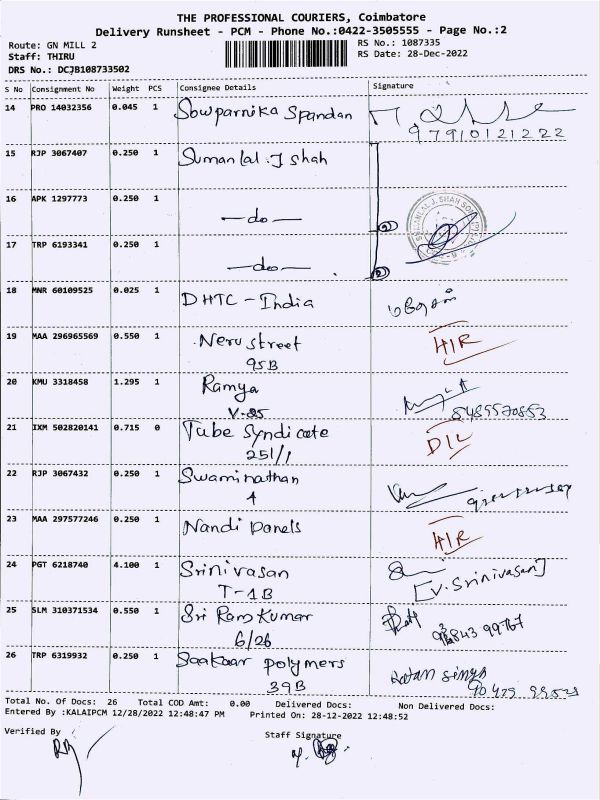 THE PROFESSIONAL COURIERS, Coimbatore
Delivery Runsheet - PCM - Phone No.:0422-3505555 - Page No.:2
Route: GN MILL 2
RS No.: 1087335
Staff: THIRU
RS Date: 28-Dec-2022
DRS No.: DCJB108733502
S No Consignment No Weight PCS Consignee Details Signature
14 PRO 14032356 0.045 1 Sowparnika Spandan
97910121222
15 RJP 3067407 0.250 1 Sumanlal.J shah
16 APK 1297773 0.250 1 —do—
17 TRP 6193341 0.250 1 —do—
18 MNR 60109525 0.025 1 DHTC - India
19 MAA 296965569 0.550 1 Neru street H/R
95B
20 KMU 3318458 1.295 1 Ramya
V-85 8489570853
21 IXM 502820141 0.715 0 Tube Syndicate D/L
251/1
22 RJP 3067432 0.250 1 Swaminathan
4
23 MAA 297577246 0.250 1 Nandi Panels H/R
24 PGT 6218740 4.100 1 Srinivasan
T-1B [V.Srinivasan]
25 SLM 310371534 0.550 1 Sri Ram Kumar
6/26
26 TRP 6319932 0.250 1 Saakaar polymers
39B
Total No. Of Docs: 26 Total COD Amt: 0.00 Delivered Docs: Non Delivered Docs:
Entered By :KALAIPCM 12/28/2022 12:48:47 PM Printed On: 28-12-2022 12:48:52
Verified By
Staff Signature